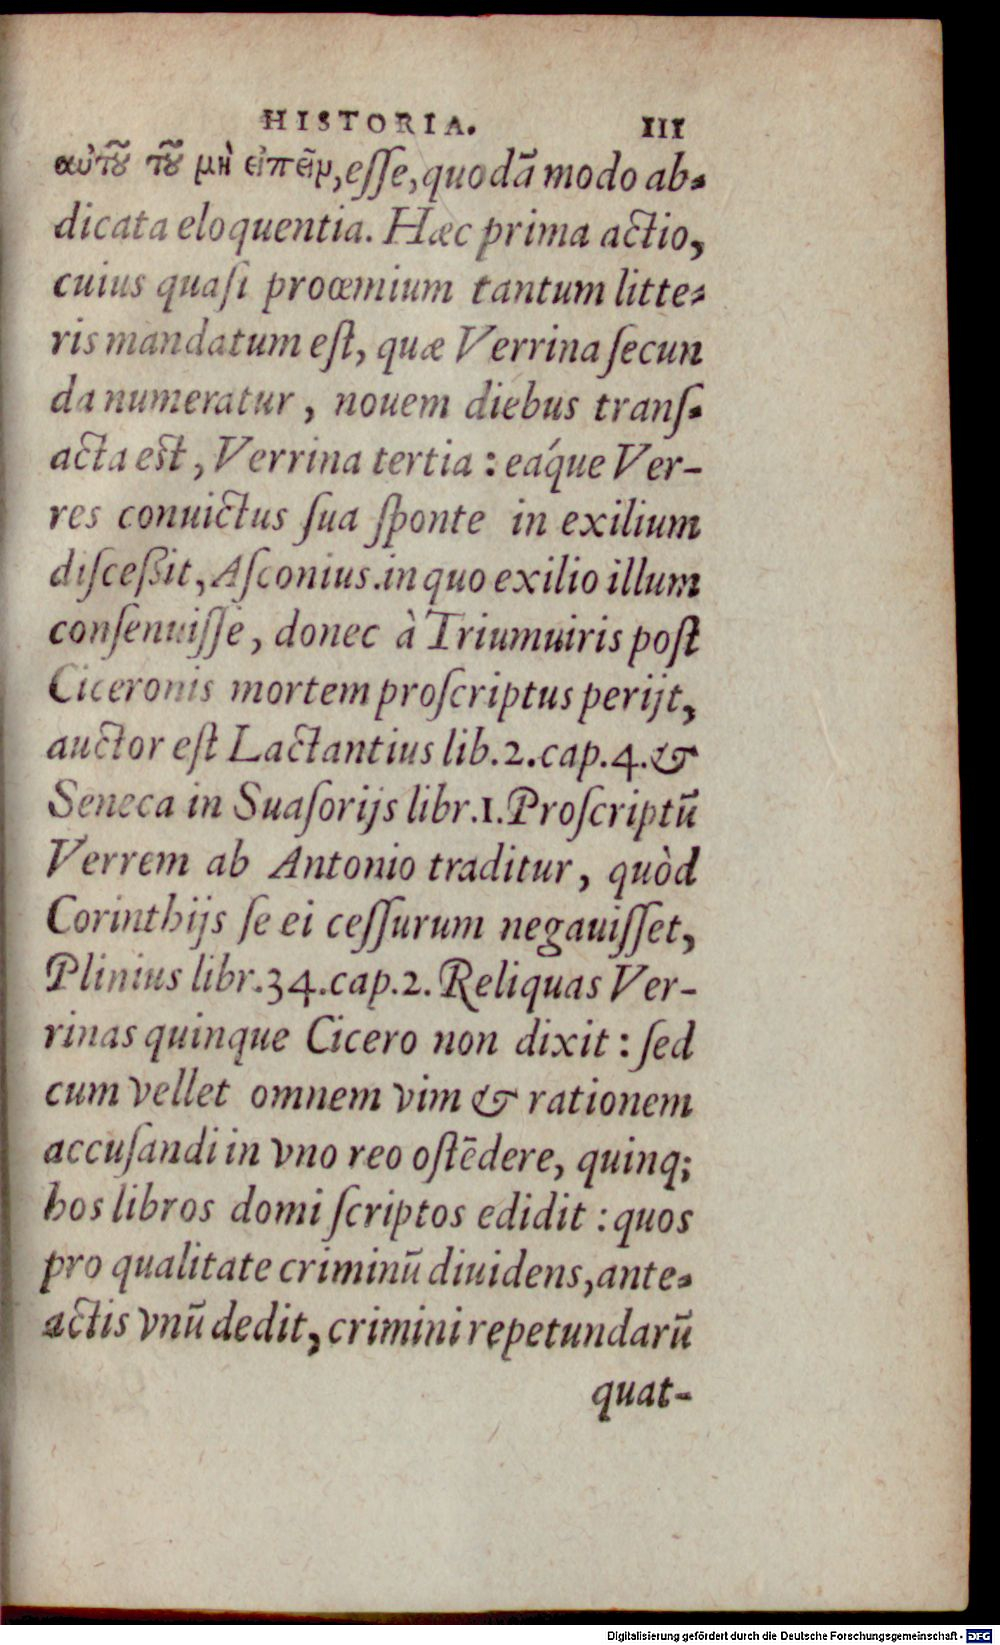 HISTORIA. III
αὐτοῦ τοῦ μὴ εἰπεῖν, esse, quodã modo ab-
dicata eloquentia. Hæc prima actio,
cuius quasi proœmium tantum litte-
ris mandatum est, quæ Verrina secun
da numeratur, nouem diebus trans-
acta est, Verrina tertia: eáque Ver-
res conuictus sua sponte in exilium
discessit, Asconius. in quo exilio illum
consenuisse, donec à Triumuiris post
Ciceronis mortem proscriptus perijt,
auctor est Lactantius lib. 2. cap. 4. &
Seneca in Suasorijs libr. 1. Proscriptũ
Verrem ab Antonio traditur, quòd
Corinthijs se ei cessurum negauisset,
Plinius libr. 34. cap. 2. Reliquas Ver-
rinas quinque Cicero non dixit: sed
cum vellet omnem vim & rationem
accusandi in vno reo ostẽdere, quinq;
hos libros domi scriptos edidit: quos
pro qualitate criminũ diuidens, ante-
actis vnũ dedit, crimini repetundarũ
quat-
Digitalisierung gefördert durch die Deutsche Forschungsgemeinschaft - DFG